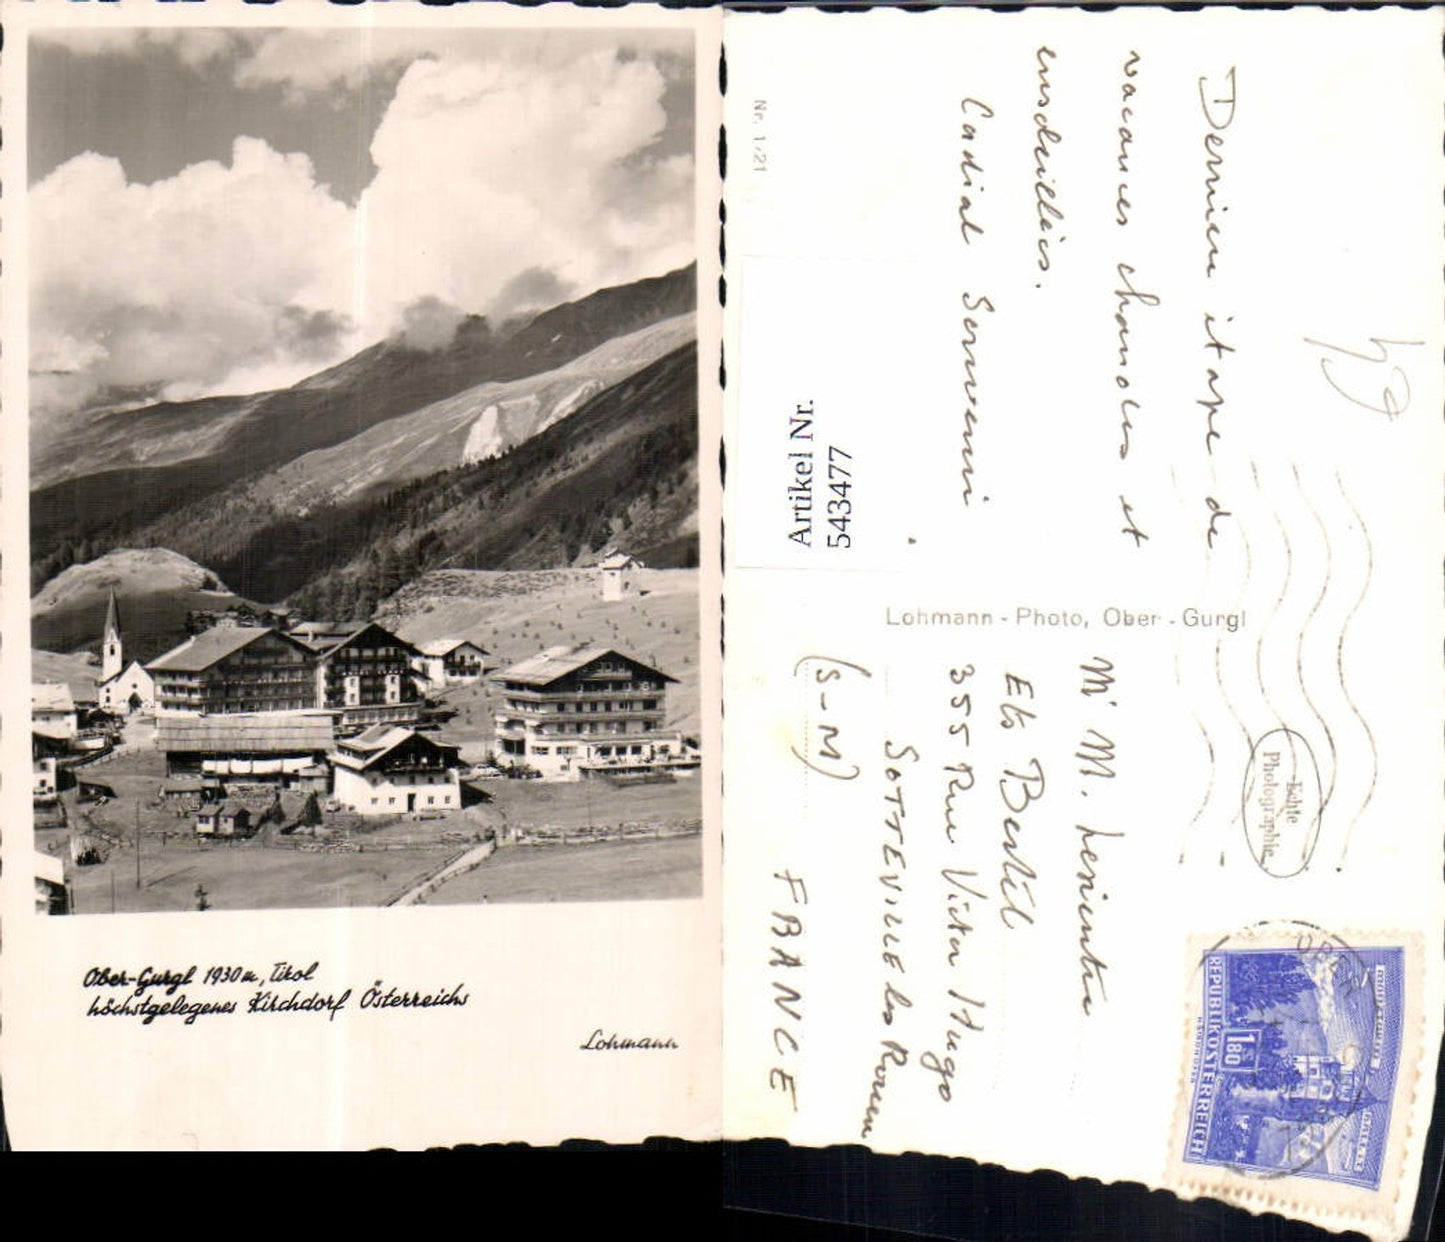 Ober-Gurgl 1930 m, Tirol
höchstgelegenes Kirchdorf Österreichs
Lohmann
Nr. 1/21
Dernière étape de
vacances chaudes et
ensoleillées.
Cadial Souvenir
Artikel Nr.
543477
Lohmann - Photo, Ober - Gurgl
M' M.
Ets
355 Rue Victor Hugo
SOTTEVILLE les Rouen
(S-M)
FRANCE
Echte
Photographie
REPUBLIK ÖSTERREICH
1.80
OBER